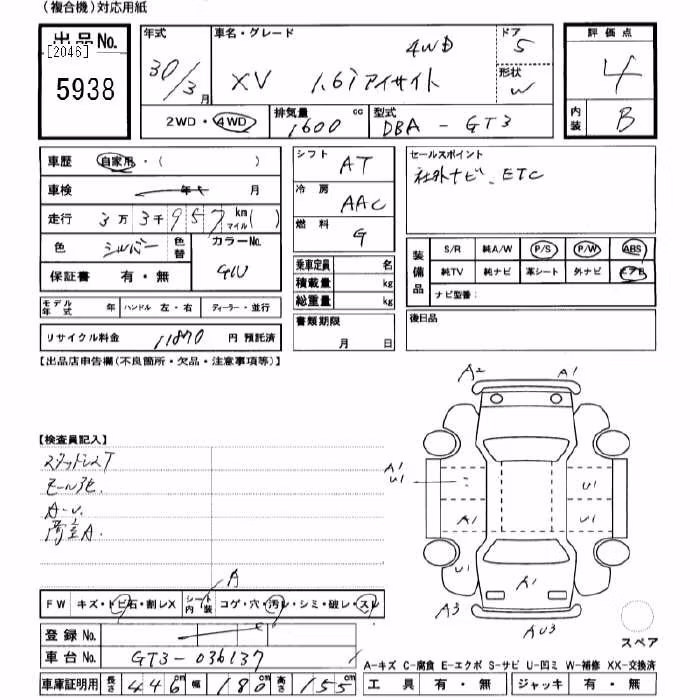 (複合機)対応用紙
出品No.
[2046]
5938
年式
30/3月
車名・グレード
XV 1.6i アイサイト 4WD
ドア
5
形状
W
2WD・4WD
排気量
1600 cc
型式
DBA-GT3
評価点
4
内装
B
車歴 自家用・( )
車検 年 月
走行 3万3千957 km マイル( )
色 シルバー 色替
カラーNo.
G1U
保証書 有・無
モデル年式 年 ハンドル 左・右 ディーラー・並行
リサイクル料金 11870 円 預託済
シフト AT
冷房 AAC
燃料 G
乗車定員 名
積載量 kg
総重量 kg
書類期限
月 日
セールスポイント
社外ナビ、ETC
装備品
S/R 純A/W P/S P/W ABS
純TV 純ナビ 革シート 外ナビ エアB
ナビ型番:
後日品
【出品店申告欄(不良箇所・欠品・注意事項等)】
【検査員記入】
スタッドレスT
モール劣
A-U
荷室A.
A2 A1
A1
U1
U1
A1 U1
U1 A1
A3 AU3
スペア
A
FW キズ・トビ石・割レX シート内装 コゲ・穴・汚レ・シミ・破レ・スレ
登録No.
車台No. GT3-036137
車庫証明用 長さ 446cm 幅 180cm 高さ 155cm
A-キズ C-腐食 E-エクボ S-サビ U-凹ミ W-補修 XX-交換済
工具 有・無 ジャッキ 有・無